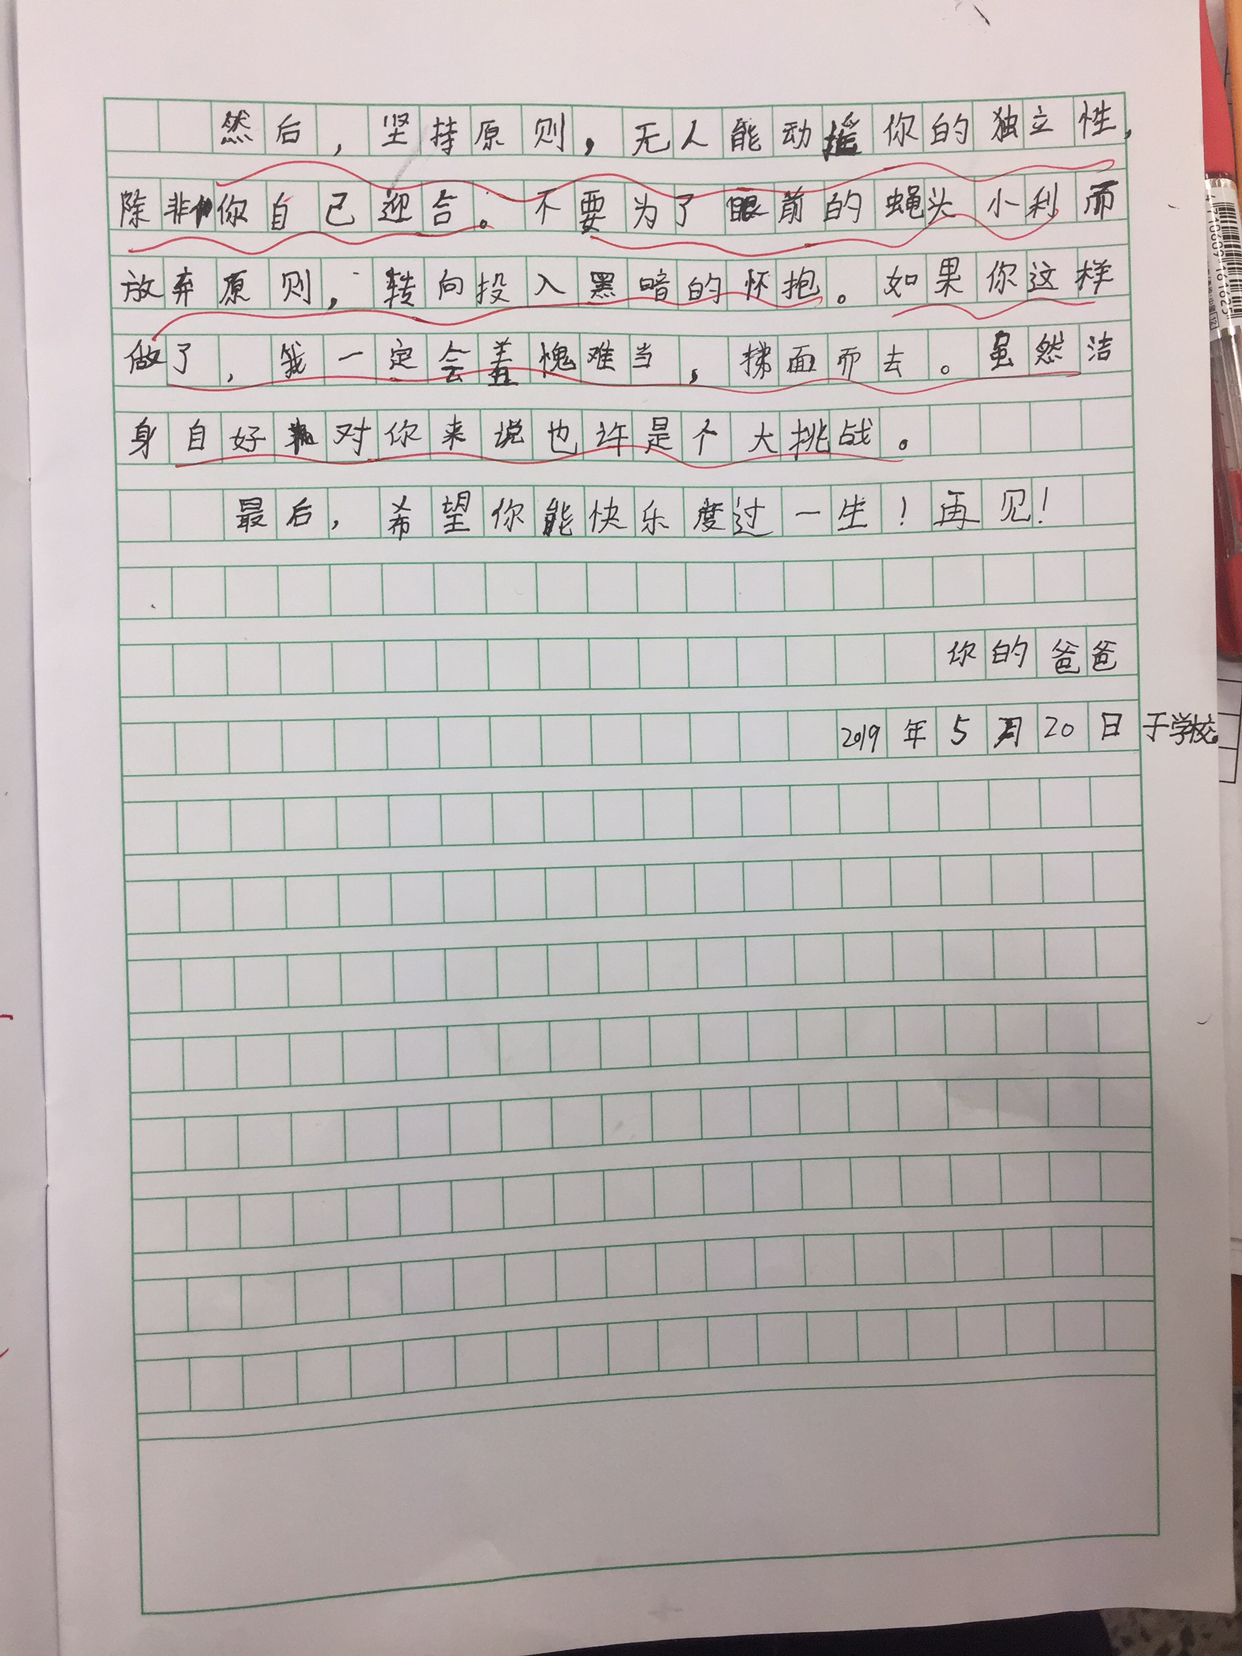 然后，坚持原则，无人能动摇你的独立性，
除非你自己迎合。不要为了眼前的蝇头小利而
放弃原则，转向投入黑暗的怀抱。如果你这样
做了，我一定会羞愧难当，拂面而去。虽然洁
身自好对你来说也许是个大挑战。
最后，希望你能快乐度过一生！再见！
你的爸爸
2019年5月20日于学校。